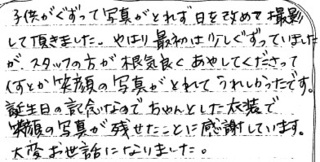 子供がぐずって写真がとれず日を改めて撮影
して頂きました。やはり最初は少しぐずっていました
が、スタッフの方が根気良くあやしてくださって
何とか笑顔の写真がとれてうれしかったです。
誕生日の記念なのでちゃんとした衣装で
笑顔の写真が残せたことに感謝しています。
大変お世話になりました。